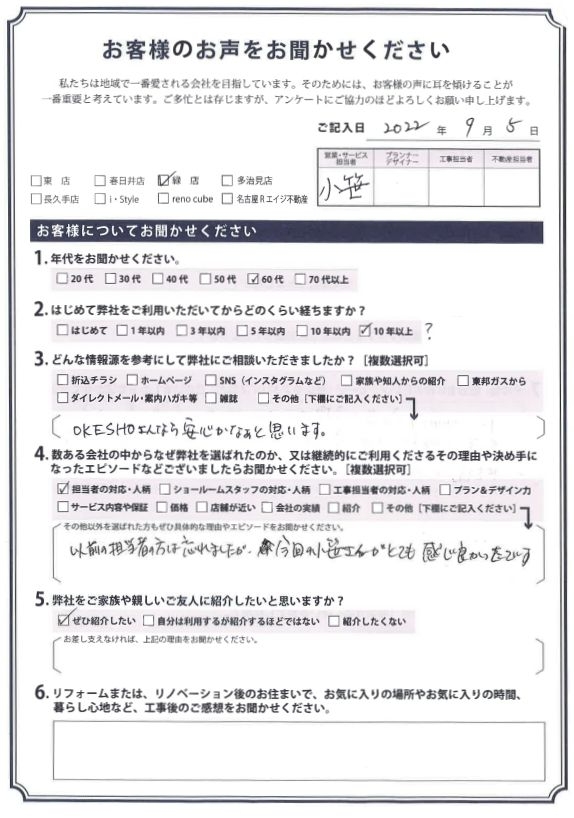 お客様のお声をお聞かせください
私たちは地域で一番愛される会社を目指しています。そのためには、お客様の声に耳を傾けることが
一番重要と考えています。ご多忙とは存じますが、アンケートにご協力のほどよろしくお願い申し上げます。
ご記入日 2022 年 9 月 5 日
営業・サービス担当者 プランナーデザイナー 工事担当者 不動産担当者
小笹
□東 店 □春日井店 ☑緑 店 □多治見店
□長久手店 □i・Style □reno cube □名古屋Rエイジ不動産
お客様についてお聞かせください
1. 年代をお聞かせください。
□20代 □30代 □40代 □50代 ☑60代 □70代以上
2. はじめて弊社をご利用いただいてからどのくらい経ちますか？
□はじめて □1年以内 □3年以内 □5年以内 □10年以内 ☑10年以上 ?
3. どんな情報源を参考にして弊社にご相談いただきましたか？［複数選択可］
□折込チラシ □ホームページ □SNS（インスタグラムなど） □家族や知人からの紹介 □東邦ガスから
□ダイレクトメール・案内ハガキ等 □雑誌 □その他［下欄にご記入ください］
OKESHOさんなら安心かなぁと思います。
4. 数ある会社の中からなぜ弊社を選ばれたのか、又は継続的にご利用くださるその理由や決め手に
なったエピソードなどございましたらお聞かせください。［複数選択可］
☑担当者の対応・人柄 □ショールームスタッフの対応・人柄 □工事担当者の対応・人柄 □プラン＆デザイン力
□サービス内容や保証 □価格 □店舗が近い □会社の実績 □紹介 □その他［下欄にご記入ください］
その他以外を選ばれた方もぜひ具体的な理由やエピソードをお聞かせください。
以前の担当者の方は忘れましたが、今回の小笹さんがとても感じ良かったです
5. 弊社をご家族や親しいご友人に紹介したいと思いますか？
☑ぜひ紹介したい □自分は利用するが紹介するほどではない □紹介したくない
お差し支えなければ、上記の理由をお聞かせください。
6. リフォームまたは、リノベーション後のお住まいで、お気に入りの場所やお気に入りの時間、
暮らし心地など、工事後のご感想をお聞かせください。